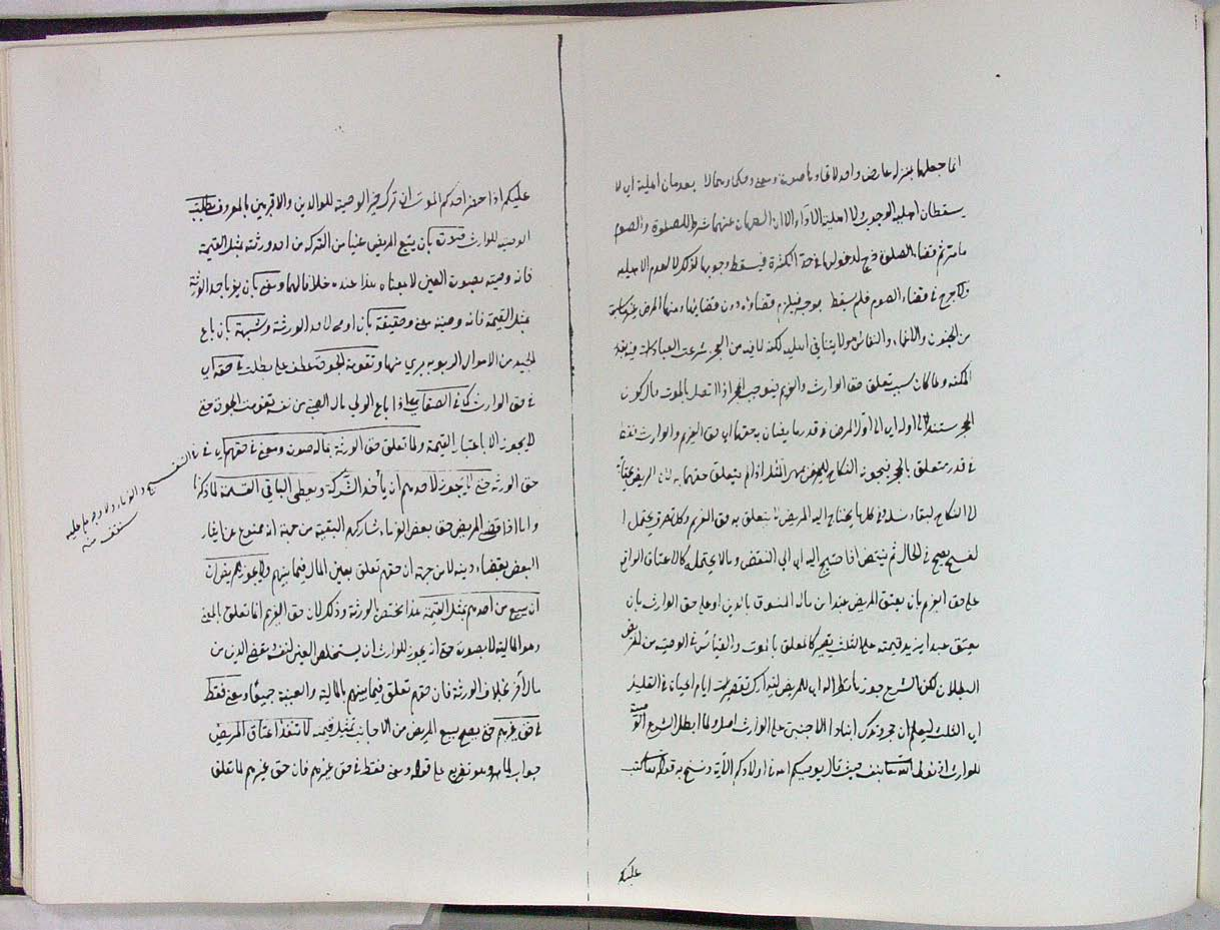 انما جعلها بمنزلة عارض واحد لاتحادهما صورة ومعنى وحكما وهما لا يعدمان اهلية اي لا
يسقطان اهلية الوجوب ولا اهلية الاداء الا ان الطهارة عنهما شرط للصلوة والصوم
ما مر ثم قضاء الصلوة حرج لدخولها في حد الكثرة فيسقط وجوبها لذلك لا لعدم الاهلية
ولا حرج في قضاء الصوم فلم يسقط وجوبه فيلزم قضاؤه دون قضائها ومنها المرض غير ما سبق
من الجنون والاغماء والنفاس هو لا ينافي اهلية لكنه لما فيه من العجز شرعت العبادات فيه بقدر
المكنة ولما كان سبب تعلق حق الوارث والغريم فيوجب الحجر اذا اتصل بالموت حال كون
الحجر مستندا الى اوله اي الى اول المرض في قدر ما يصان به حقهما اي حق الغريم والوارث فقط
في قدر متعلق بالحجر فيجوز النكاح للمريض بمهر المثل اذ لم يتعلق حقهما به لان المريض محتاج
الى النكاح لبقاء نسله وفي كل ما يحتاج اليه المريض لا يتعلق به حق الغريم وكل تصرف يحتمل ا
لفسخ يصح في الحال ثم ينقض اذا احتيج اليه اي الى النقض وما لا يحتمله كالاعتاق الواقع
على حق الغريم بان يعتق المريض عبدا من ماله المستغرق بالدين او على حق الوارث بان
يعتق عبدا يزيد قيمته على الثلث يصير كالمعلق بالموت والقياس في الوصية من المريض
البطلان لكن الشرع جوزها نظرا له اي للمريض ليتدارك تقصيرات ايام الحياة في القليل
اي الثلث ليعلم ان الحجر وترك ايثار الاجنبي على الوارث اصل ولما ابطل الشرع الوصية
للوارث اذ تولاها الله تعالى بنفسه حيث قال يوصيكم الله في اولادكم الآية ونسخ به قوله تعالى كتب
عليكم
عليكم اذا حضر احدكم الموت ان ترك خيرا الوصية للوالدين والاقربين بالمعروف بطلت
الوصية للوارث صورة بان يبيع المريض عينا من التركة من احد ورثته بمثل القيمة
فانه وصية بصورة العين لا بمعناه هذا عنده خلافا لهما ومعنى بان يقر باحد الورثة
بمثل القيمة فانه وصية معنى وحقيقة بان اوصى لاحد الورثة وشبهة بان باع
الجيد من الاموال الربوية بردي منها وتقوم الجودة عطف على بطلت في حقه اي
في حق الوارث كما في الصغار اي اذا باع الولي مال الصبي من نفسه تقومت الجودة حتى
لا يجوز الا باعتبار القيمة ولما تعلق حق الورثة بماله صورة ومعنى في حقهم اي في
حق الورثة حتى لا يجوز لاحدهم ان يأخذ التركة ويعطي الباقي القيمة لما ذكرنا
واما اذا قضى المريض حق بعض الغرماء شاركهم البقية من جهة انه ممنوع عن ايثار
البعض بقضاء دينه لا من جهة ان حقهم تعلق بعين المال فيما بينهم ولا يجوز للمريض ان
ان يبيع من احدهم بمثل القيمة هذا يختص بالورثة وذلك لان حق الغريم انما تعلق بالمعنى
وهو المالية لا بصورة حتى انه يجوز للوارث ان يستخلص العين لنفسه ويقضي الدين من
مال آخر بخلاف الورثة فان حقهم تعلق فيما بينهم بالمالية والعينية جميعا ومعنى فقط
في حق غيرهم حتى يصح بيع المريض من الاجانب بمثل قيمته لا ينفذ اعتاق المريض
جواب لما وهو تفريع على قوله ومعنى فقط في حق غيرهم فان حق غيرهم لما تعلق